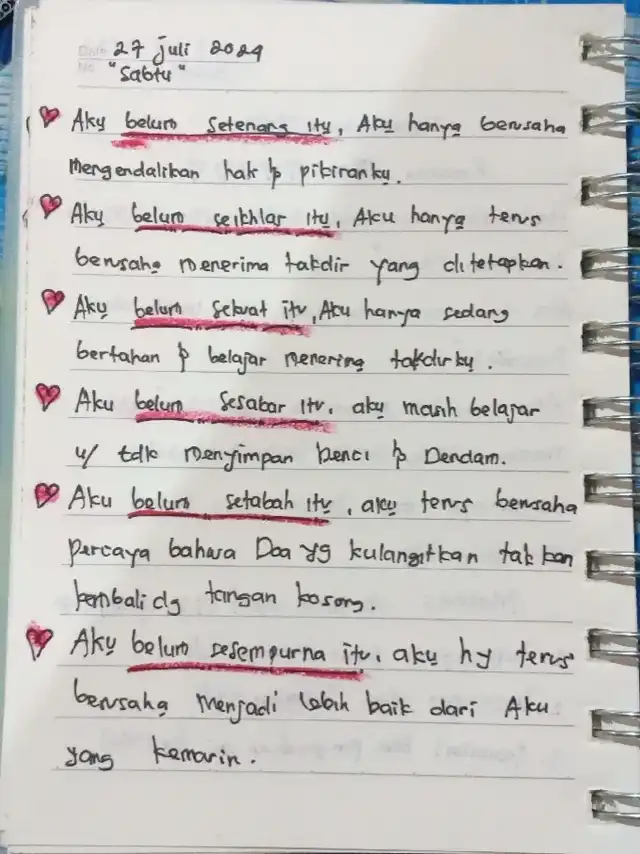 27 juli 2024
"Sabtu"
Aku belum setenang itu, Aku hanya berusaha
mengendalikan hak & pikiranku.
Aku belum seikhlas itu, Aku hanya terus
berusaha menerima takdir yang ditetapkan.
Aku belum sekuat itu, Aku hanya sedang
bertahan & belajar menerima takdirku.
Aku belum sesabar itu, aku masih belajar
u/ tdk menyimpan benci & Dendam.
Aku belum setabah itu, aku terus berusaha
percaya bahwa Doa yg kulangitkan tak kan
kembali dg tangan kosong.
Aku belum sesempurna itu, aku hy terus
berusaha menjadi lebih baik dari Aku
yang kemarin.